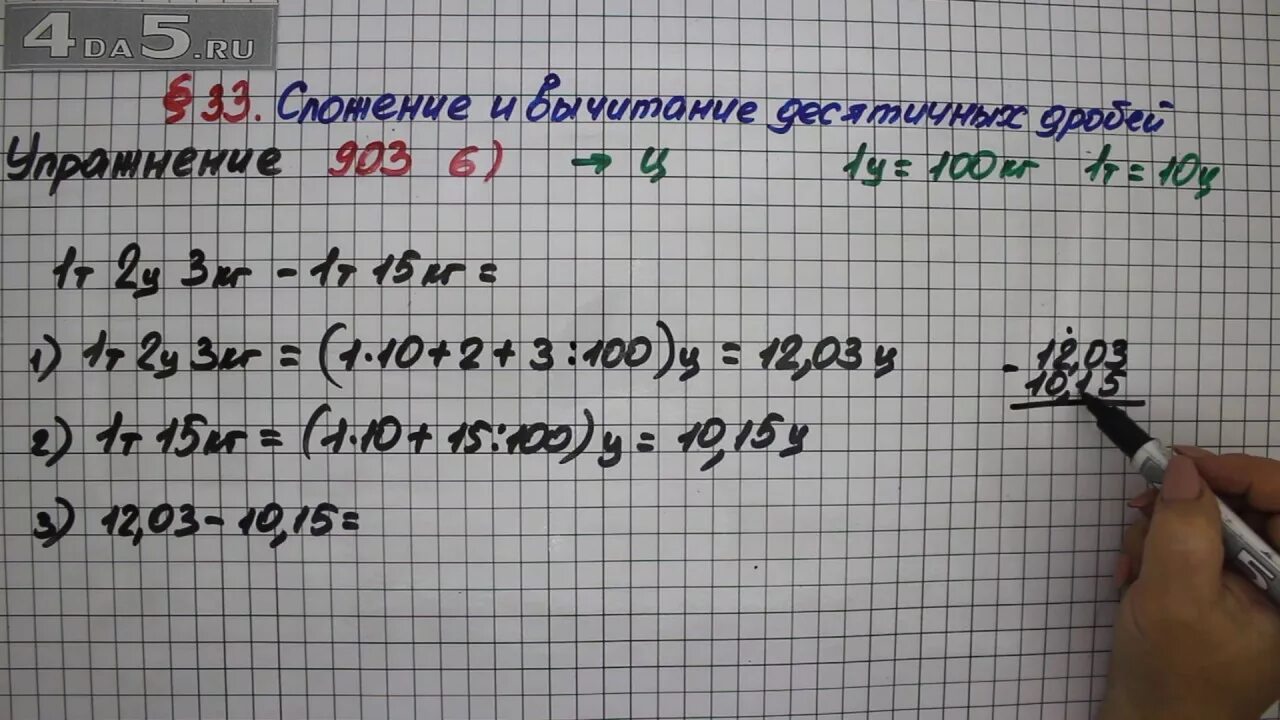 4DA5.RU
§ 33. Сложение и вычитание десятичных дробей
Упражнение 903 б) → ц 1ц = 100кг 1т = 10ц
1т 2ц 3кг - 1т 15кг =
1) 1т 2ц 3кг = (1·10+2+3:100)ц = 12,03ц
2) 1т 15кг = (1·10+15:100)ц = 10,15ц
3) 12,03-10,15=
- 12,03
10,15